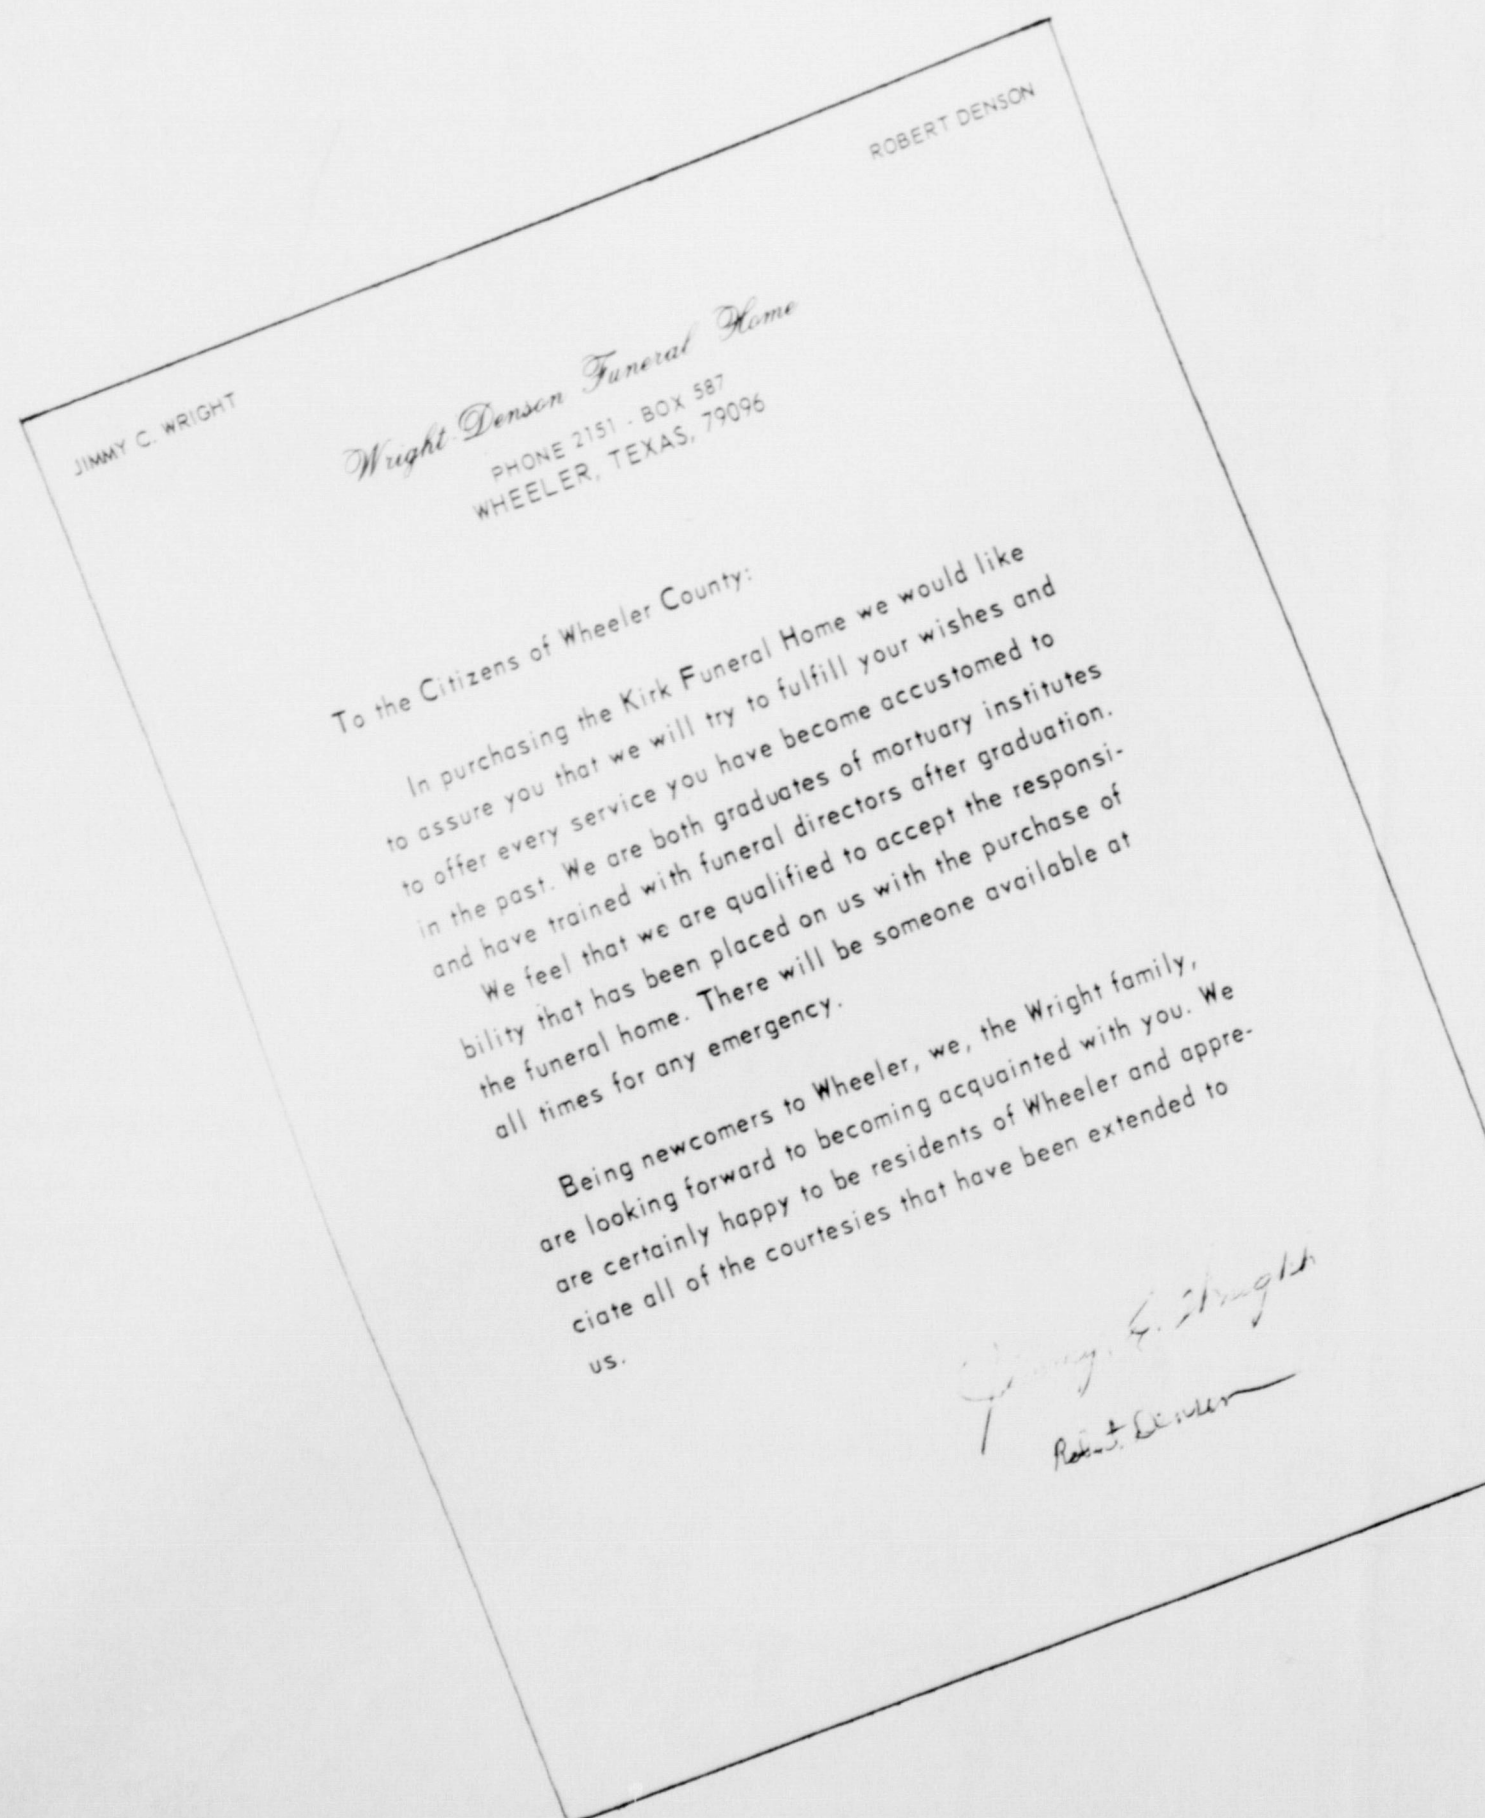 JIMMY C. WRIGHT
ROBERT DENSON
Wright-Denson Funeral Home
PHONE 2151 - BOX 587
WHEELER, TEXAS, 79096
To the Citizens of Wheeler County:
In purchasing the Kirk Funeral Home we would like
to assure you that we will try to fulfill your wishes and
to offer every service you have become accustomed to
in the past. We are both graduates of mortuary institutes
and have trained with funeral directors after graduation.
We feel that we are qualified to accept the responsi-
bility that has been placed on us with the purchase of
the funeral home. There will be someone available at
all times for any emergency.
Being newcomers to Wheeler, we, the Wright family,
are looking forward to becoming acquainted with you. We
are certainly happy to be residents of Wheeler and appre-
ciate all of the courtesies that have been extended to
us.
Wright
Robert Denson